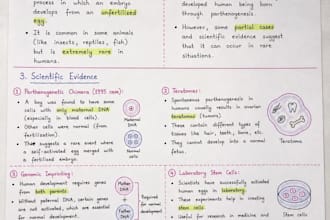 process in which an embryo
develops from an unfertilized
egg.
• It is common in some animals
(like insects, reptiles, fish)
but is extremely rare in
humans.
developed human being born
through parthenogenesis.
• However, some partial cases
and scientific evidence suggest
that it can occur in rare
situations.
3. Scientific Evidence
① Parthenogenetic Chimera (1995 case):
• A boy was found to have some
cells with only maternal DNA
(especially in blood cells)
• Other cells were normal (from
fertilization).
• This suggests a rare event where
a self-activated egg merged with
a fertilized embryo.
Maternal
DNA
Normal
DNA
② Teratomas:
• Spontaneous parthenogenesis in
humans usually results in ovarian
teratomas (tumors).
• These contain different types of
tissues like hair, teeth, bone, etc.
• They cannot develop into a normal
fetus.
Teratoma
③ Genomic Imprinting:
• Human development requires genes
from both parents.
• Without paternal DNA, certain genes
are not activated, which are essential
for normal development.
Mother
DNA
+
Father
DNA
Required
for normal
development
④ Laboratory Stem Cells:
• Scientists have successfully activated
human eggs in laboratory.
• These experiments help in creating
stem cells.
• Useful for research and medicine
Stem Cells